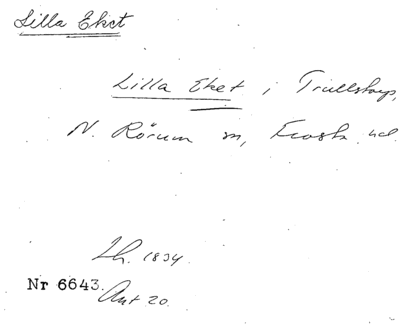 Lilla Eket
Lilla Eket i Trullstorp,
N. Rörum sn, Frosta hd.
Lh. 1834
Nr 6643.
Ant 20.